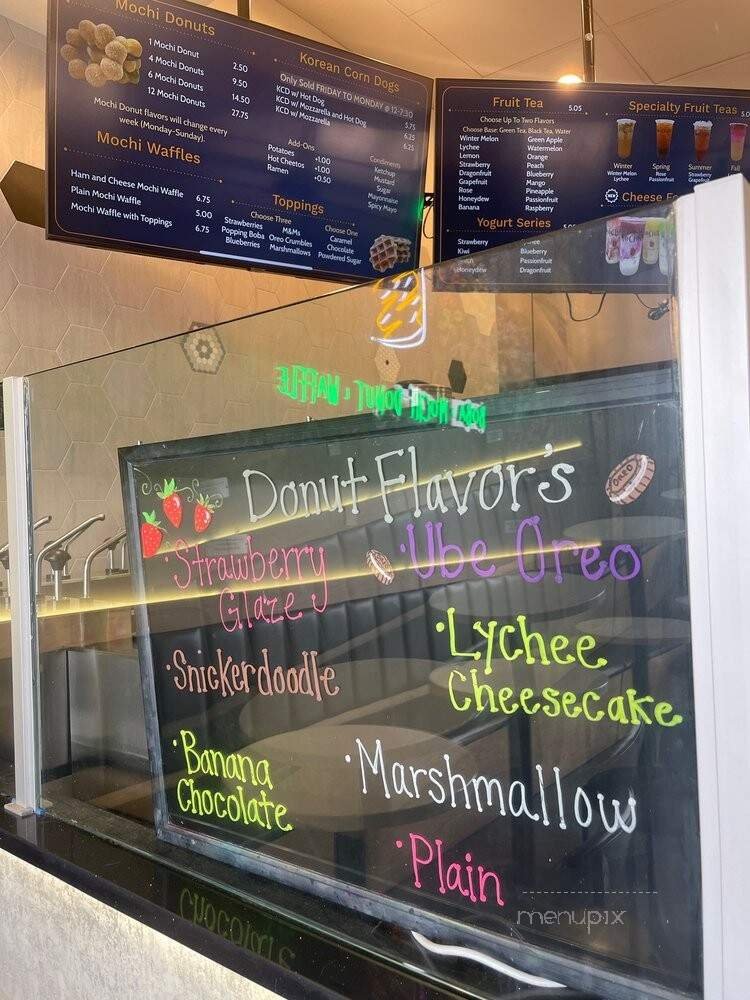 Mochi Donuts
1 Mochi Donut 2.50
4 Mochi Donuts 9.50
6 Mochi Donuts 14.50
12 Mochi Donuts 27.75
Mochi Donut flavors will change every
week (Monday-Sunday).
Mochi Waffles
Ham and Cheese Mochi Waffle 6.75
Plain Mochi Waffle 5.00
Mochi Waffle with Toppings 6.75
Korean Corn Dogs
Only Sold FRIDAY TO MONDAY @ 12-7:30
KCD w/ Hot Dog 5.75
KCD w/ Mozzarella and Hot Dog 6.25
KCD w/ Mozzarella 6.25
Add-Ons
Potatoes +1.00
Hot Cheetos +1.00
Ramen +0.50
Condiments
Ketchup
Mustard
Sugar
Mayonnaise
Spicy Mayo
Toppings
Choose Three
Strawberries M&Ms
Popping Boba Oreo Crumbles
Blueberries Marshmallows
Choose One
Caramel
Chocolate
Powdered Sugar
Fruit Tea 5.05
Choose Up To Two Flavors
Choose Base: Green Tea, Black Tea, Water
Winter Melon Green Apple
Lychee Watermelon
Lemon Orange
Strawberry Peach
Dragonfruit Blueberry
Grapefruit Mango
Rose Pineapple
Honeydew Passionfruit
Banana Raspberry
Yogurt Series
Strawberry
Kiwi Blueberry
Passionfruit
Honeydew Dragonfruit
Specialty Fruit Teas
Winter
Winter Melon
Lychee
Spring
Rose
Passionfruit
Summer
Strawberry
Grapefruit
Fall
NEW
Cheese
MOCHI DONUT & WAFFLE
Donut Flavor's
OREO
• Strawberry
Glaze
• Ube Oreo
• Snickerdoodle
• Lychee
Cheesecake
• Banana
Chocolate
• Marshmallow
• Plain
menupix